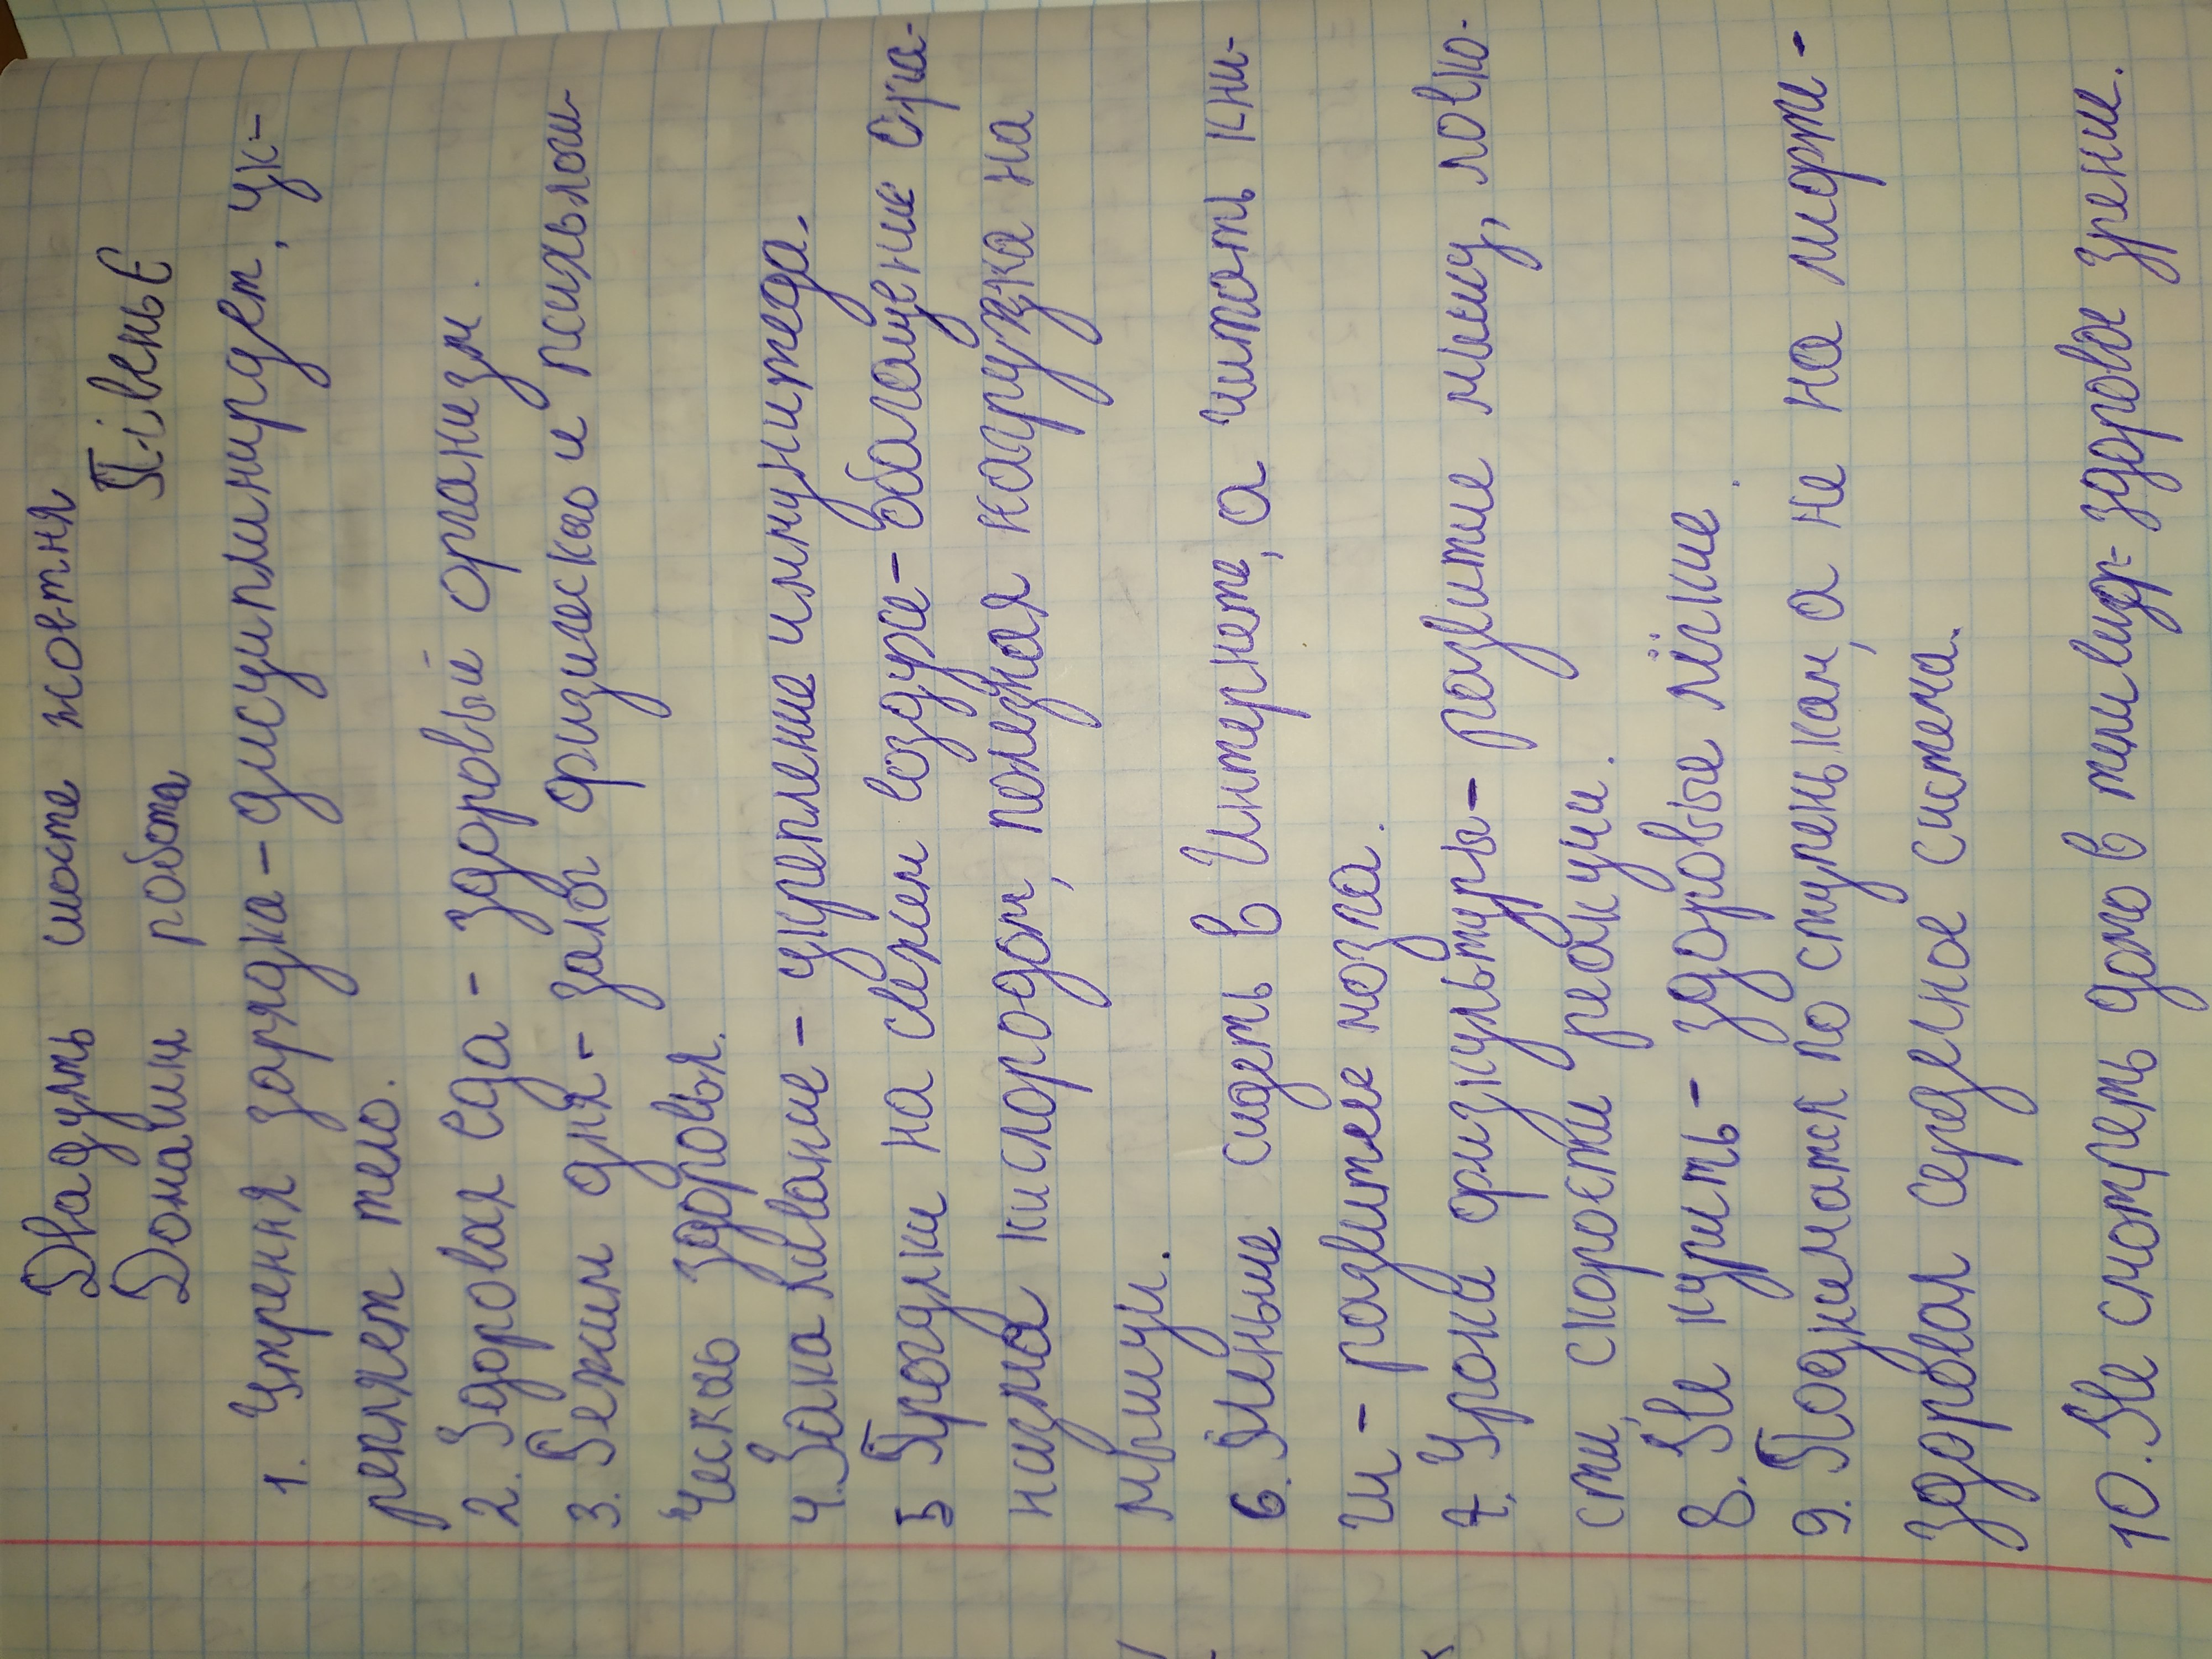 Двадцять шосте жовтня
Домашня робота Півень Є
1. Утрення зарядка - дисциплинирует, ук-
репляет тело.
2. Здоровая еда - здоровый организм.
3. Режим дня - залог физическо и психолги-
ческо здоровья.
4. Закаливание - укрепление иммунитеда.
5 Прогулки на свежем воздухе - обагощение орга-
низма кислородом, полезная нагрузка на
мышцы.
6. Меньше сидеть в Интернете, а читать кни-
ги - развитие мозга.
7. Уроки физкультуры - развитие мышц, ловко-
сти, скорости реакции.
8. Не курить - здоровые лёгкие.
9. Подниматся по ступенькам, а не на лифте -
здоровая сердечное система.
10. Не смотреть долго в телевизр - здоровое зрение.